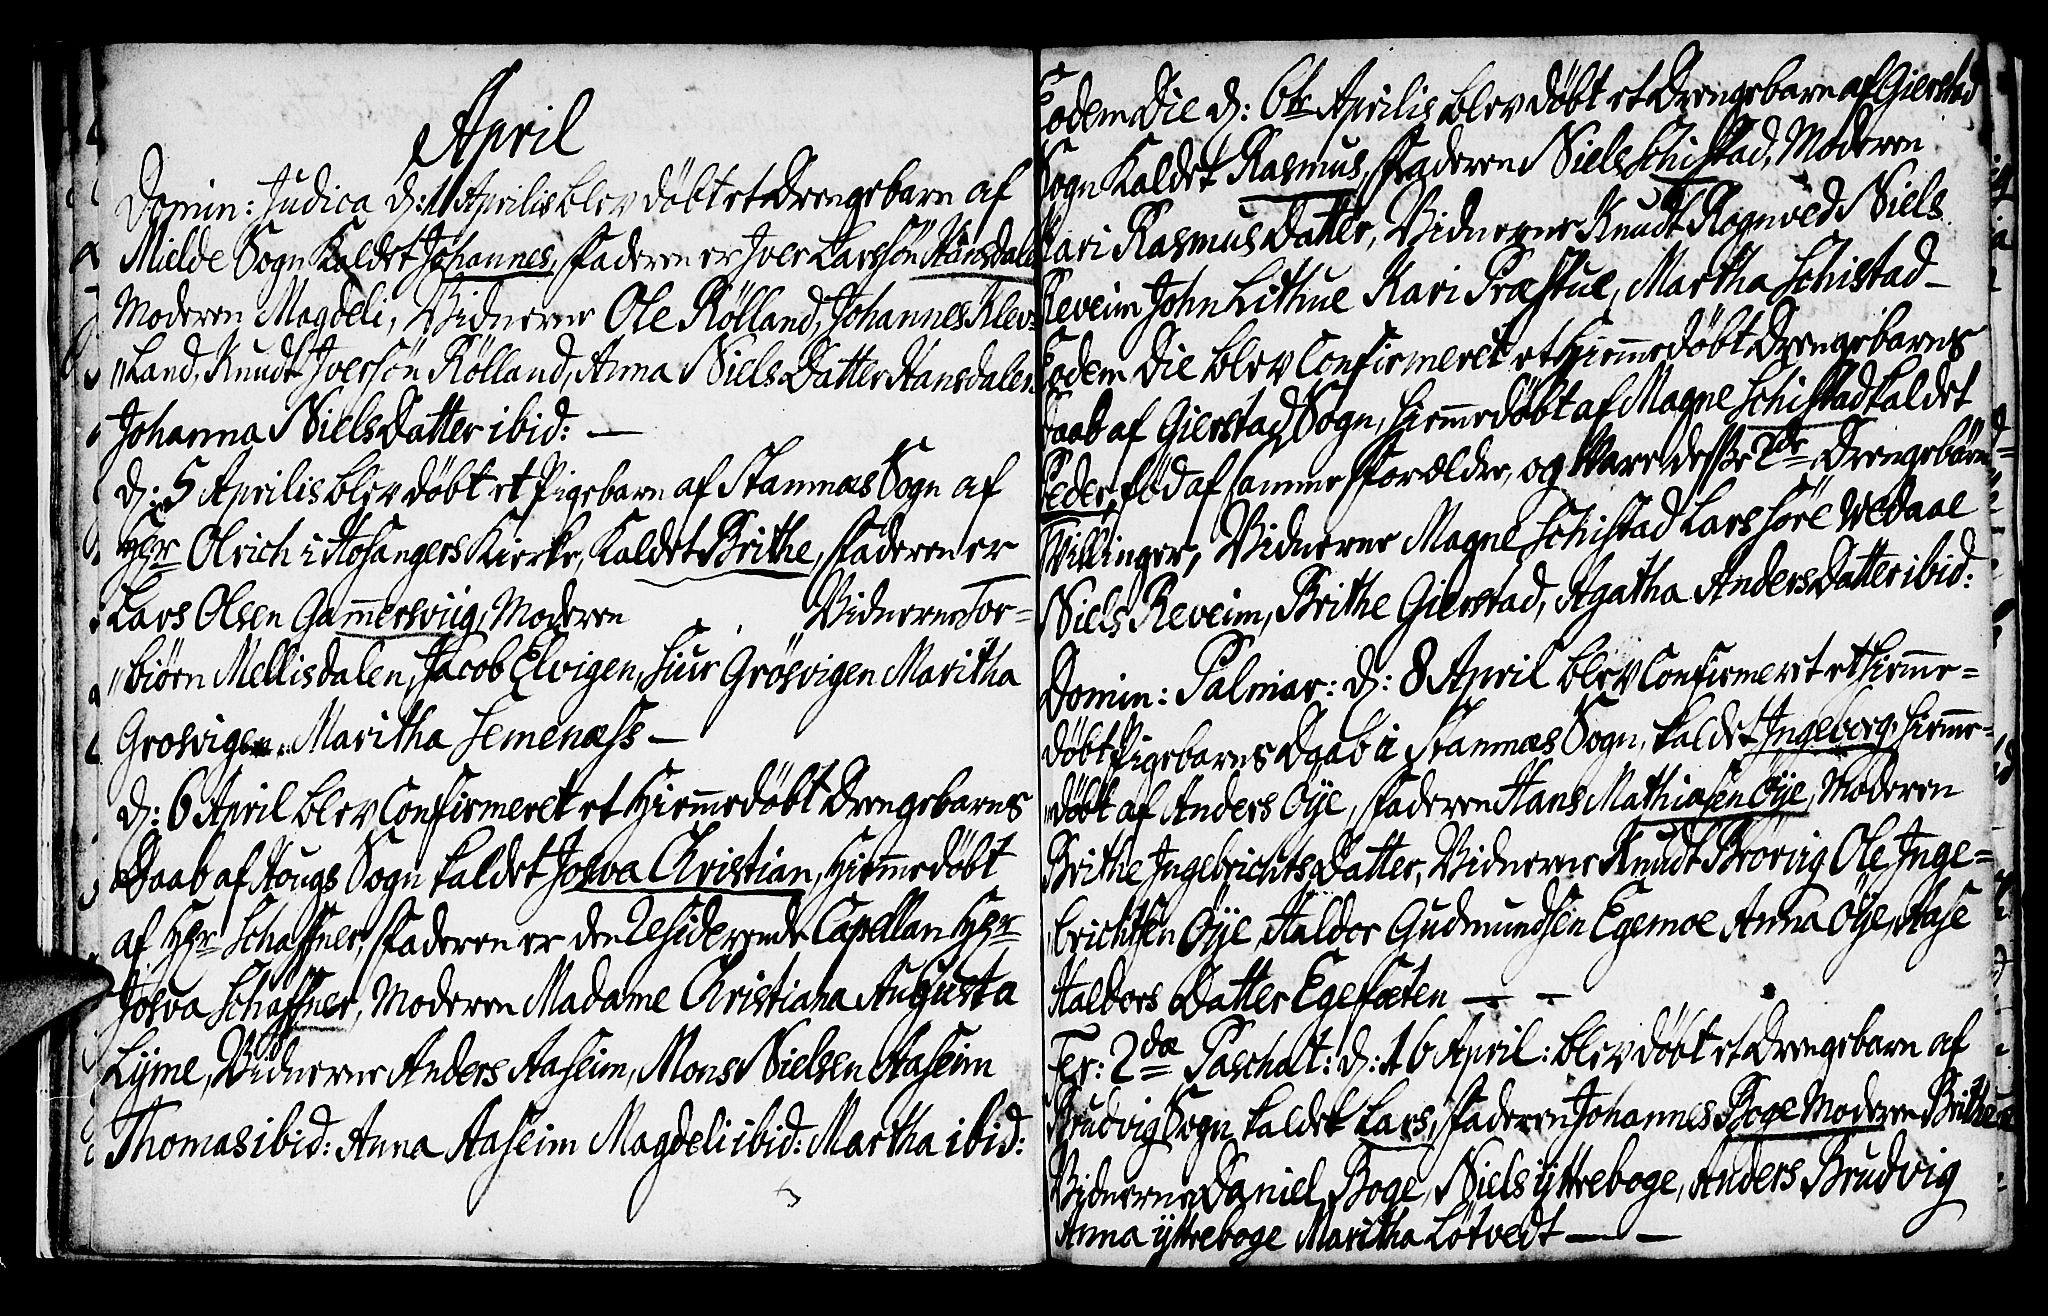 April
Domin: Judica d: 1 Aprilis blev döbt et Drengebarn af
Mielde Sogn Kaldet Johannes, Faderen er Iver Larssön Hansdalen
Moderen Magdeli, Vidnerne Ole Rölland, Johannes Klev=
"land, Knudt Iversön Rölland, Anna Niels Datter Hansdalen
Johanna Niels Datter ibid: —
d: 5 Aprilis blev döbt et Pigebarn af Stamnæs Sogn af
Hr Olrich i Hosangers Kierke, Kaldet Brithe, Faderen er
Lars Olsen Gammersviig, Moderen Vidnerne Tor=
"biörn Mellisdalen, Jacob Elvigen, Siur Grösvigen Maritha
Grosvigen Maritha Semenæss —
d: 6 April blev Confirmeret et Hiemmedöbt Drengebarns
Daab af Hougs Sogn kaldet Josva Christian, Hiemmedöbt
af Hr Schaffner, Faderen er den Residerende Capellan Hr
Josva Schaffner, Moderen Madame Christiana Augusta
Lyme, Vidnerne Anders Aaseim, Mons Nielsen Aaseim
Thomas ibid: Anna Aaseim Magdeli ibid: Martha ibid:
Eodem Die d: 6te Aprilis blev döbt et Drengebarn af Gierstad
Sogn Kaldet Rasmus, Faderen Niels Schistad, Moderen
Kari Rasmus Datter, Vidnerne Knudt Rognved Niels
Reveim John Lithue Kari Præstue, Martha Schistad —
Eodem Die blev Confirmeret et Hiemmedöbt Drengebarns
Daab af Gierstad Sogn, Hiemmedöbt af Magne Schistad kaldet
Peder föd af samme Forældre, og vare desse 2de Drengebörn
Tvillinger, Vidnerne Magne Schistad Lars Söre Wedaae
Niels Reveim, Brithe Gierstad, Agatha Anders Datter ibid:
Domin: Palmar: d: 8 April blev Confirmeret et Hiemme=
döbt Pigebarns Daab i Stamnæs Sogn, kaldet Ingeborg, Hiemme=
"döbt af Anders Öye, Faderen Hans Mathiasen Öye, Moderen
Brithe Ingebrichts Datter, Vidnerne Knudt Brörvig Ole Inge=
"brichtsen Öye, Haldor Gudmundsen Egemoe Anna Öye, Aase
Haldors Datter Egesæten — —
Fer: 2da Paschat: d: 16 April: blev döbt et Drengebarn af
Brudvig Sogn kaldet Lars, Faderen Johannes Boge Moderen Brithe
Vidnerne Daniel Boge, Niels ÿttreboge, Anders Brudvig
Anna ÿttreboge Maritha Lötvedt — —